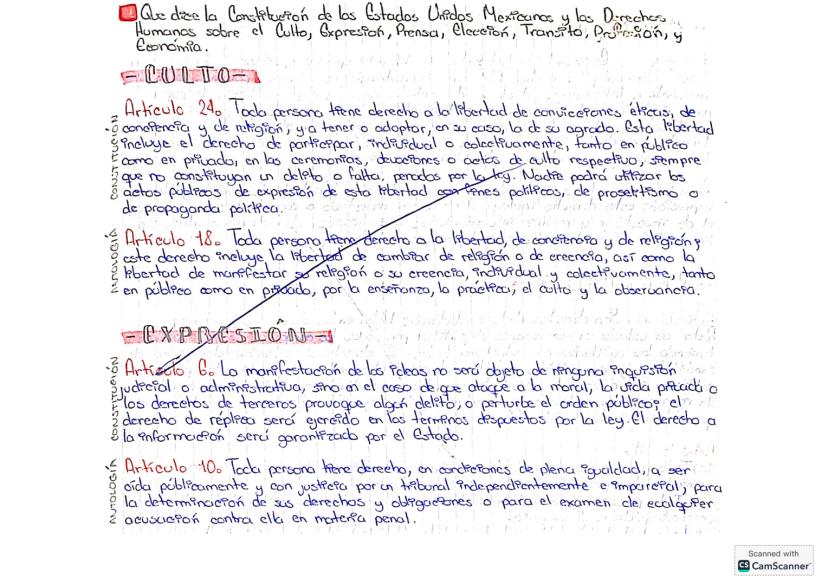 Que dice la Constitución de los Estados Unidos Mexicanos y los Derechos
Humanos sobre el Culto, Expresión, Prensa, Elección, Transito, Profesión, y
Economía.
-CULTO-
Artículo 24. Toda persona tiene derecho a la libertad de convicciones éticas, de
conciencia y de religión, y a tener o adoptar, en su caso, la de su agrado. Esta libertad
incluye el derecho de participar, individual o colectivamente, tanto en público
como en privado, en las ceremonias, devociones o actos de culto respectivo, siempre
que no constituyan un delito o falta, penados por la ley. Nadie podrá utilizar los
actos públicos de expresión de esta libertad con fines políticos, de proselitismo o
de propaganda política.
Artículo 18. Toda persona tiene derecho a la libertad, de conciencia y de religión;
este derecho incluye la libertad de cambiar de religión o de creencia, así como la
libertad de manifestar su religión o su creencia, individual y colectivamente, tanto
en público como en privado, por la enseñanza, la práctica, el culto y la observancia.
-EXPRESIÓN-
Artículo 6. La manifestación de las ideas no será objeto de ninguna inquisión
judicial o administrativa, sino en el caso de que ataque a la moral, la vida privada o
los derechos de terceros provoque algún delito, o perturbe el orden público; el
derecho de réplica será ejercido en los terminos dispuestos por la ley. El derecho a
la información será garantizado por el Estado.
Artículo 10. Toda persona tiene derecho, en condiciones de plena igualdad, a ser
oída públicamente y con justicia por un tribunal independientemente e imparcial, para
la determinación de sus derechos y obligaciones o para el examen de
acusación contra ella en materia penal.
Scanned with
CS CamScanner